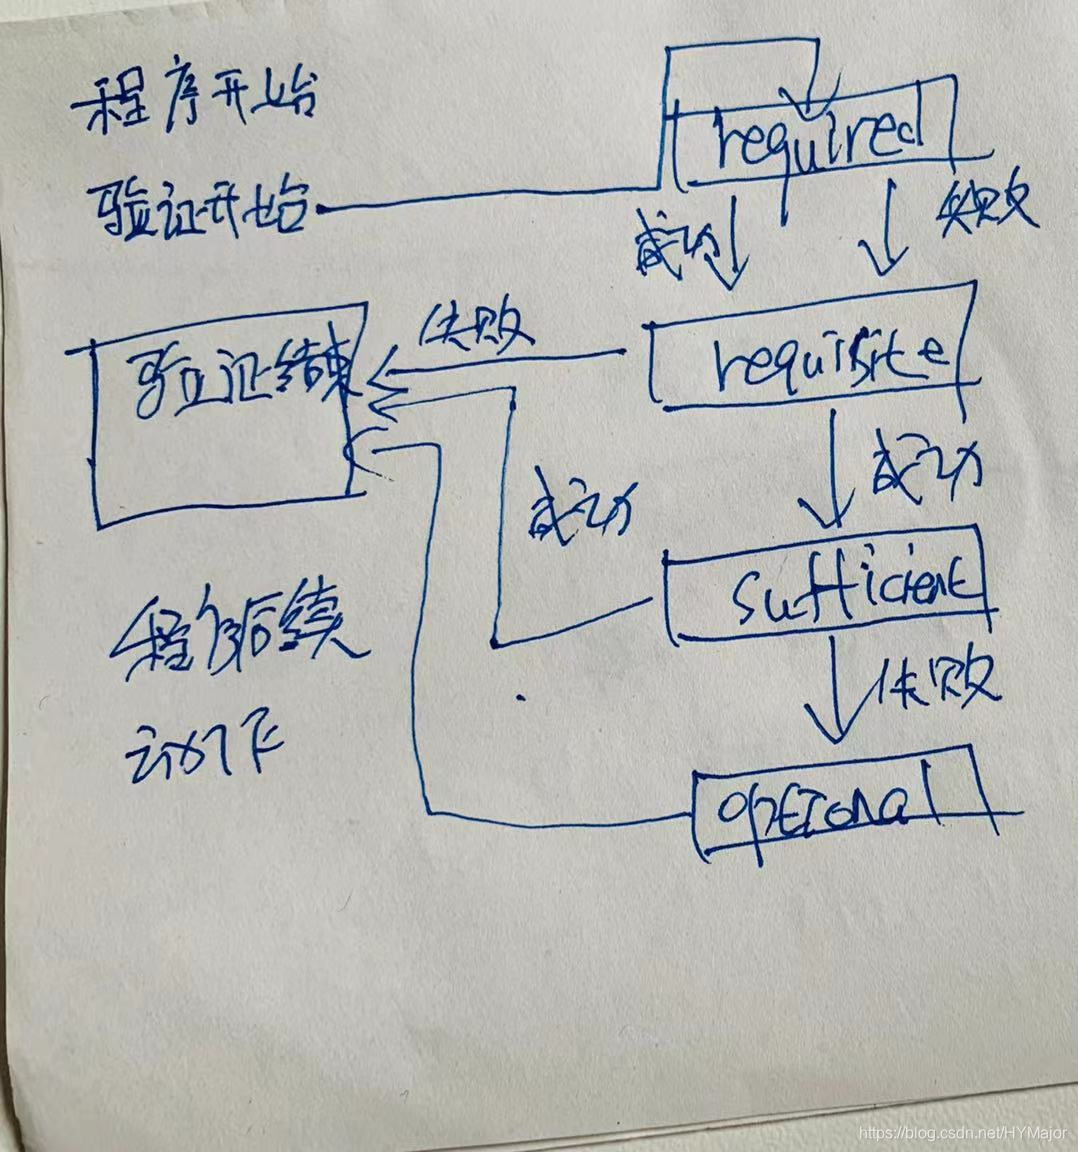 程序开始
required
验证开始
成功
失败
失败
requisite
验证结束
成功
成功
sufficient
程序后续
失败
动作
optional
https://blog.csdn.net/HYMajor